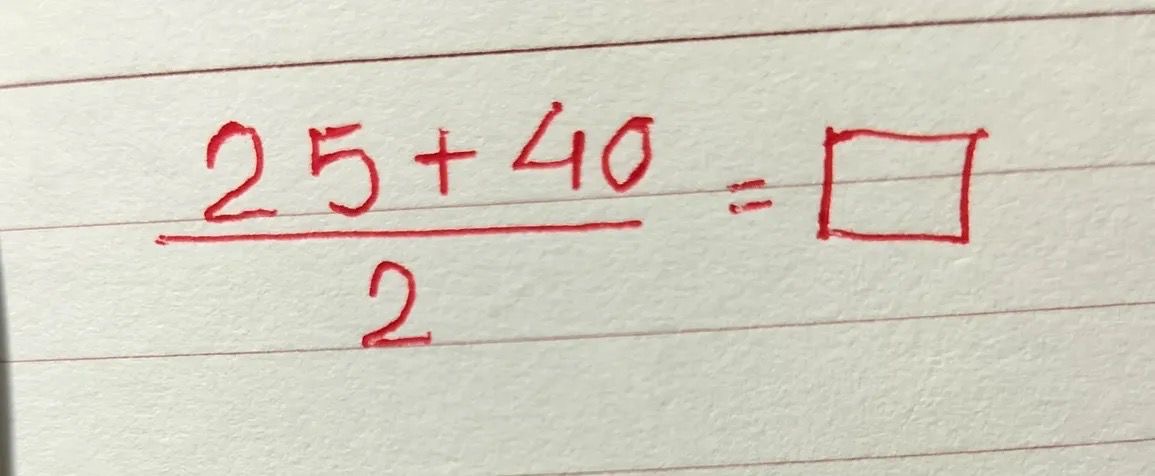 25 + 40 = □
2